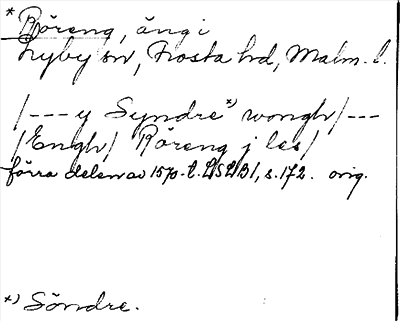 * Röreng, äng i
Hyby sn, Frosta hd, Malm. l.
/--- y Syndre *) wongh/---
/Engh/ Röreng j les/
förra delen av 1570-t. LSLB1, s. 172. orig.
*) Söndre.